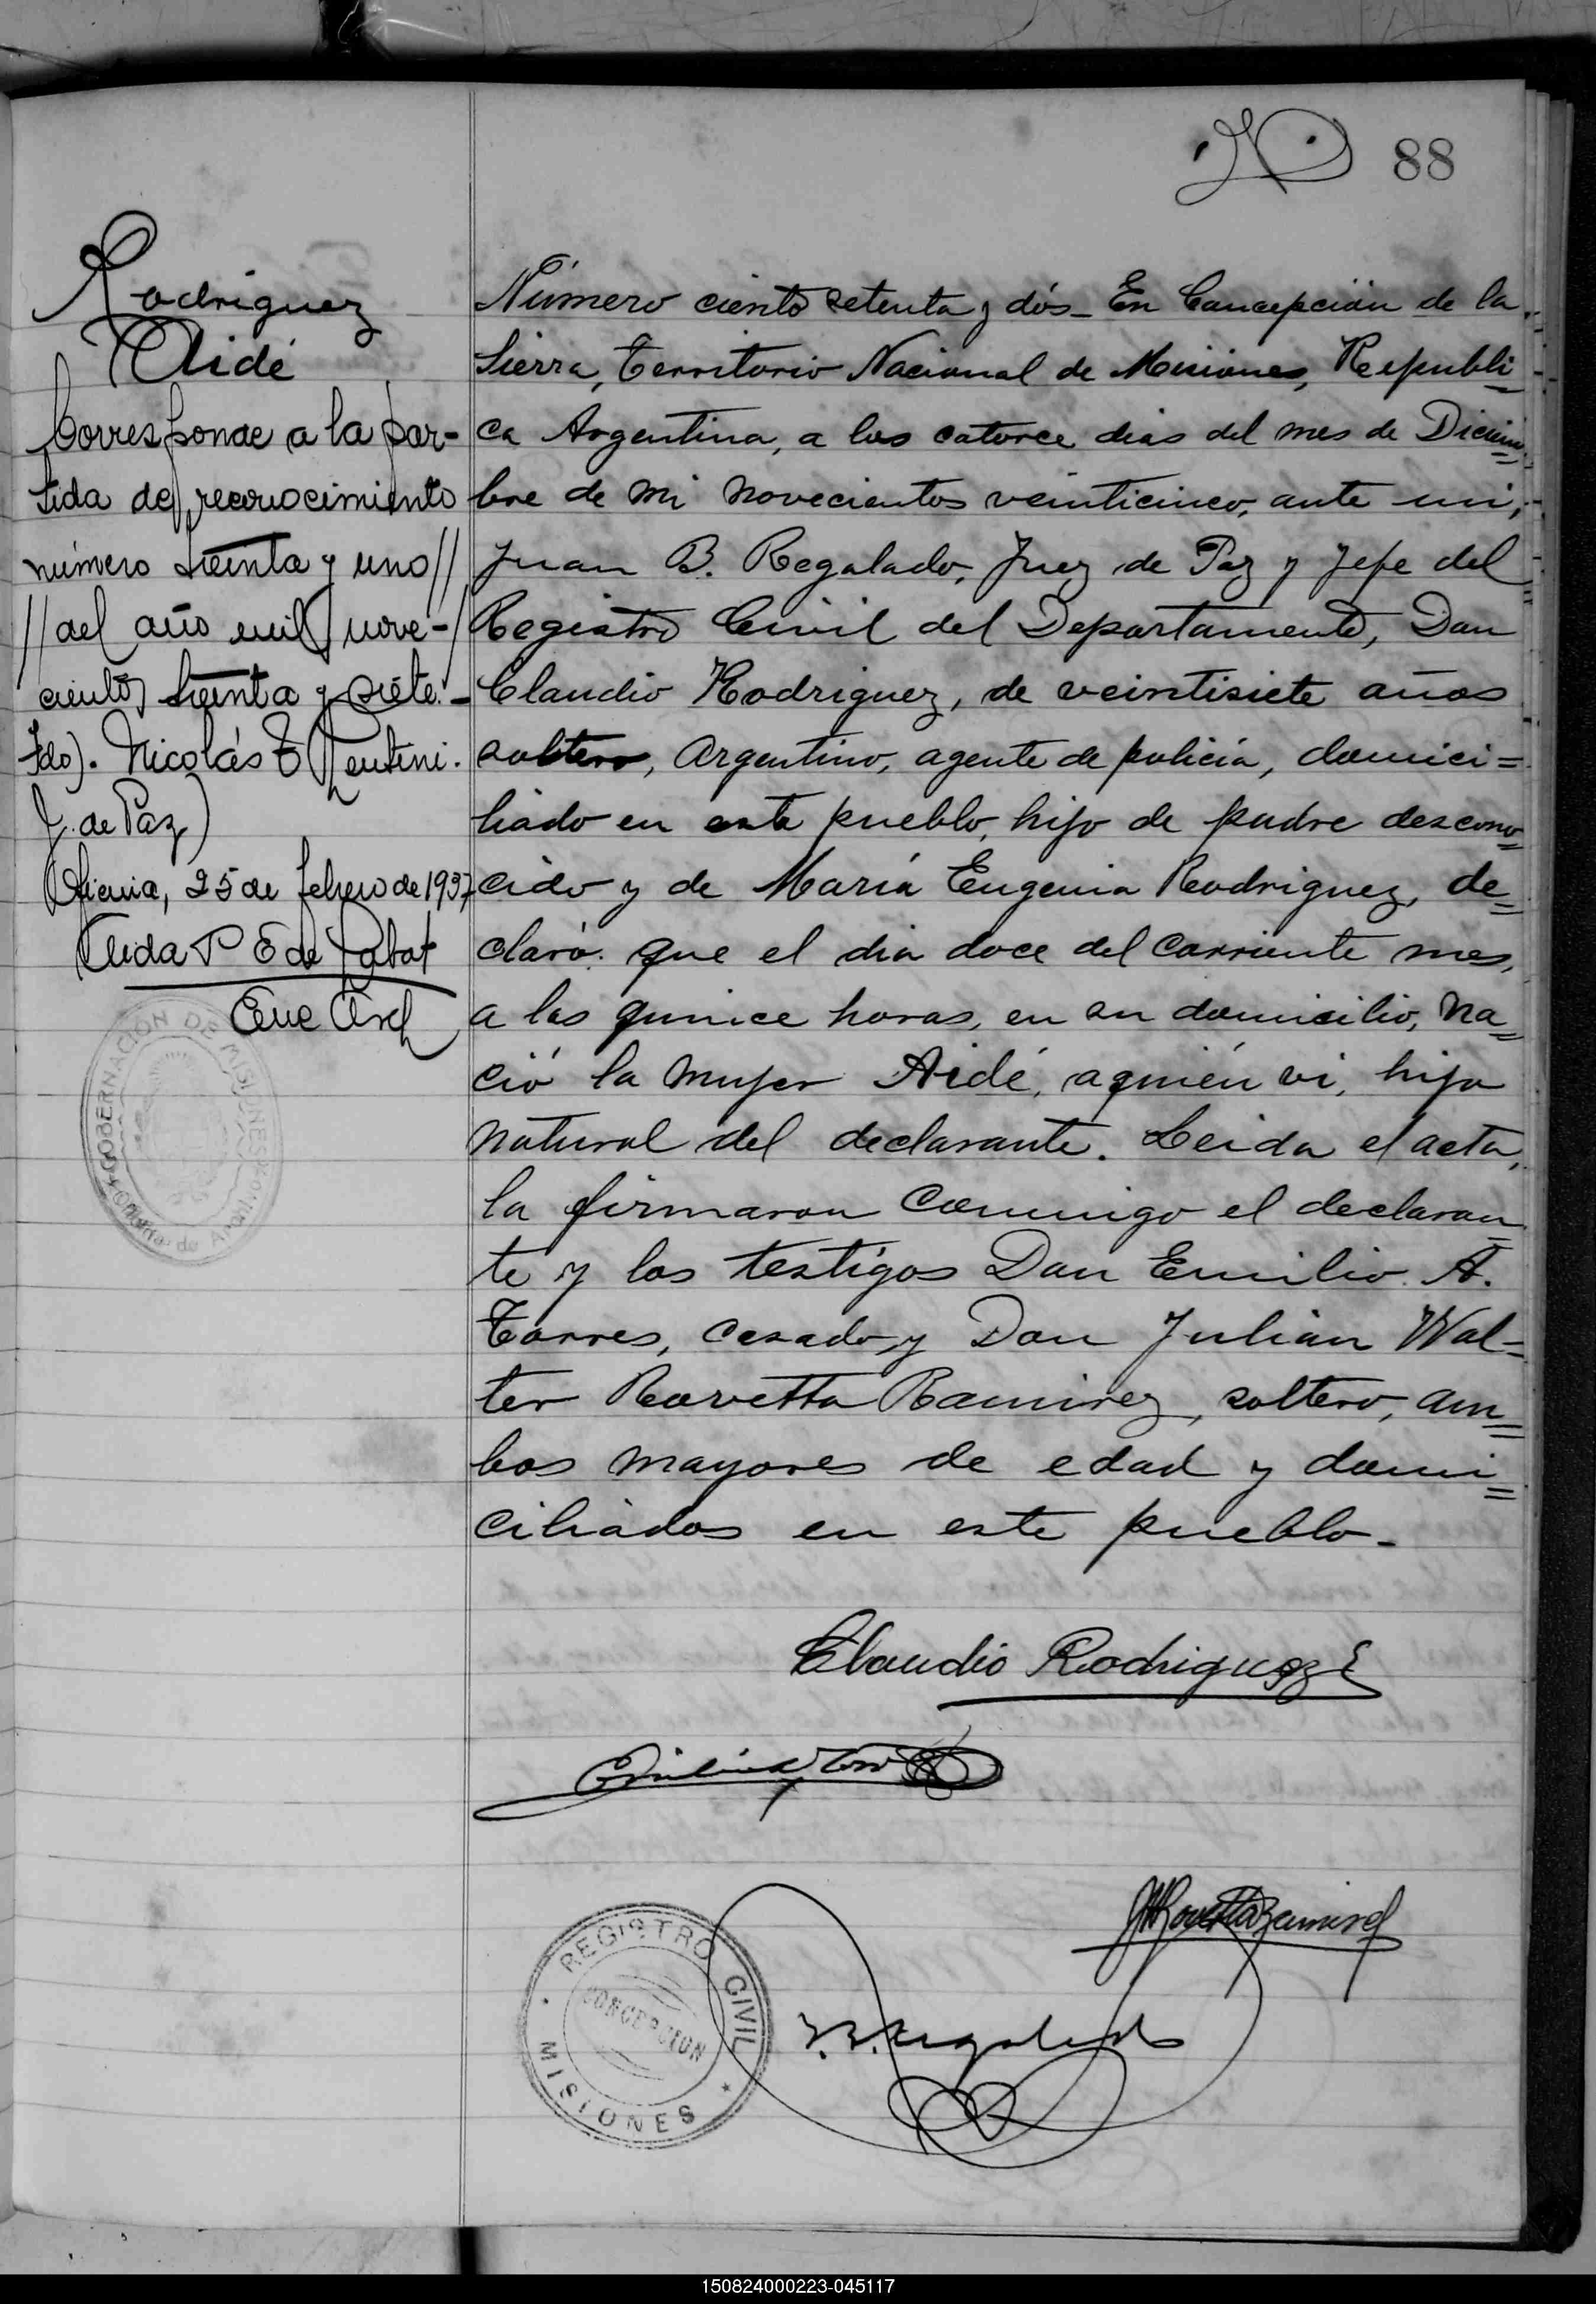 88
Rodriguez
Aidé
Corresponde a la par-
tida de reconocimiento
número treinta y uno//
//del año mil nove-//
cientos treinta y siete.-
Fdo). Nicolás T
J. de Paz)
Oficina, 25 de febrero de 1937
Enc Arch
GOBERNACION DE MISIONES
Número ciento setenta y dós_ En Concepción de la
Sierra, Territorio Nacional de Misiones, Republi=
ca Argentina, a los catorce dias del mes de Diciem=
bre de mi novecientos veinticinco, ante mi,
Juan B. Regalado, Juez de Paz y Jefe del
Registro Civil del Departamento, Don
Claudio Rodriguez, de veintisiete años
soltero, Argentino, agente de policía, domici=
liado en este pueblo, hijo de padre descono=
cido y de María Eugenia Rodriguez, de=
claró: que el dia doce del corriente mes,
a las quince horas, en su domicilio, na=
ció la mujer Aidé, aquién vi, hija
natural del declarante. Leida el acta,
la firmaron conmigo el declaran=
te y los testigos Don Emilio A.
Torres, casado y Don Julián Wal=
ter Rovetta Ramirez, soltero, am=
bos mayores de edad y domi=
ciliados en este pueblo-
Claudio Rodriguez
REGISTRO CIVIL
CONCEPCION
MISIONES
J.B. Regalado
150824000223-045117